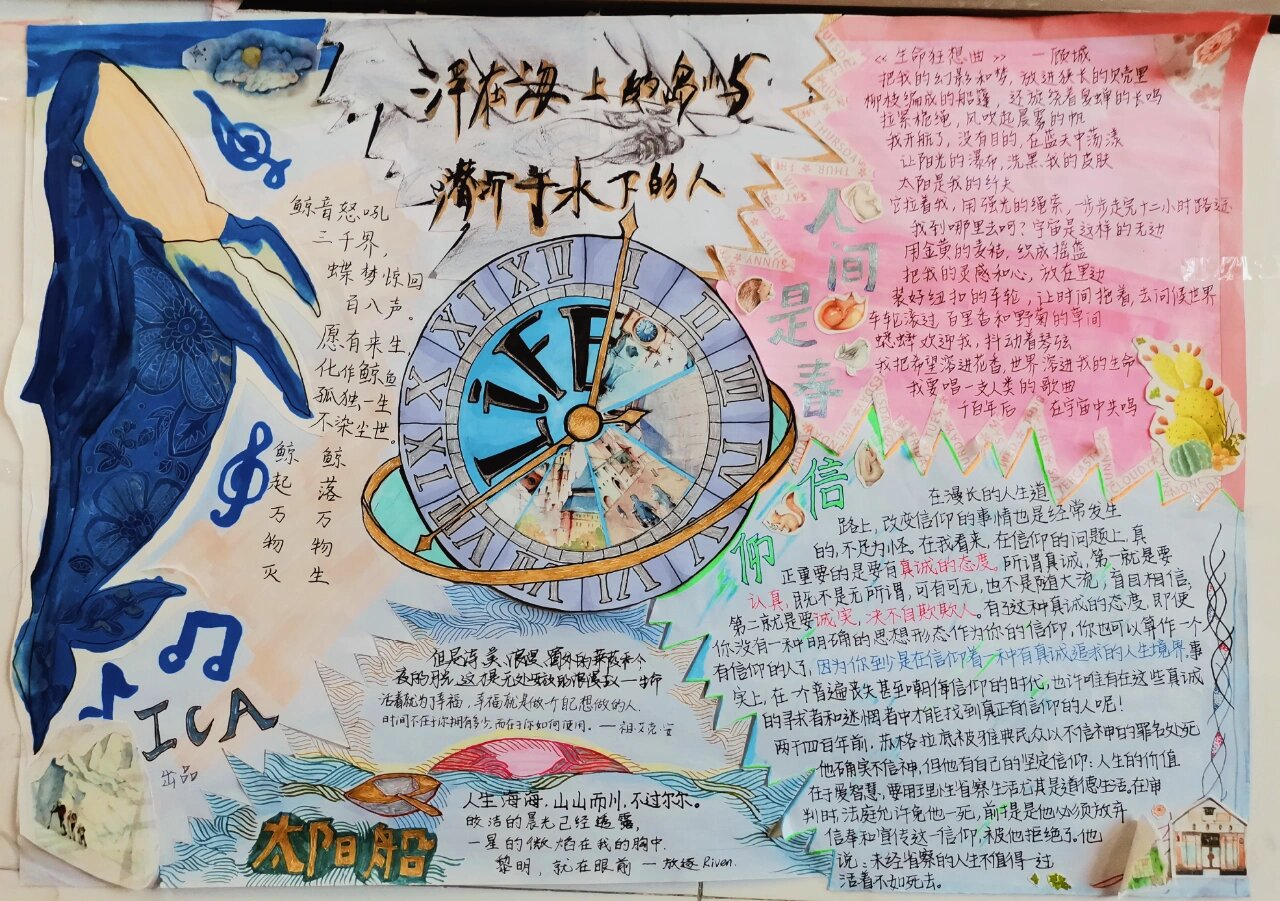 浮在海上的岛屿
潜沉于水下的人
鲸音怒吼
三千界，
蝶梦惊回
百八声。
愿有来生
化作鲸鱼
孤独一生
不染尘世。
鲸落万物生
鲸起万物灭
ICA
出品
LIFE
XII
I
II
III
IV
V
VI
VII
VIII
IX
X
XI
《生命狂想曲》 —顾城
把我的幻影和梦，放进狭长的贝壳里
柳枝编成的船篷，还旋绕着夏蝉的长鸣
拉紧桅绳，风吹起晨雾的帆
我开航了，没有目的，在蓝天中荡漾
让阳光的瀑布，洗黑我的皮肤
太阳是我的纤夫
它拉着我，用强光的绳索，一步步走完十二小时路途
我到哪里去呵？宇宙是这样的无边
用金黄的麦秸，织成摇篮
把我的灵感和心，放在里边
装好纽扣的车轮，让时间拖着，去问候世界
车轮滚过 百里香和野菊的草间
蟋蟀欢迎我，抖动着琴弦
我把希望溶进花香，世界溶进我的生命
我要唱一支人类的歌曲
千百年后 在宇宙中共鸣
人间是春
信仰
在漫长的人生道
路上，改变信仰的事情也是经常发生
的，不足为怪。在我看来，在信仰的问题上，真
正重要的是要有真诚的态度。所谓真诚，第一就是要
认真，既不是无所谓，可有可无，也不是随大流，盲目相信，
第二就是要诚实，决不自欺欺人。有了这种真诚的态度，即使
你没有一种明确的思想形态作为你的信仰，你也可以算作一个
有信仰的人了，因为你到少是在信仰着一种有真诚追求的人生境界。事
实上，在一个普遍丧失甚至嘲侮信仰的时代，也许唯有在这些真诚
的寻求者和迷惘者中才能找到真正有信仰的人呢！
两千四百年前，苏格拉底被雅典民众以不信神的罪名处死
他确实不信神，但他有自己的坚定信仰：人生的价值
在于爱智慧，要用理性省察生活尤其是道德生活。在审
判时，法庭允许免他一死，前提是他必须放弃
信奉和宣传这一信仰，被他拒绝了。他
说：未经省察的人生不值得一过
活着不如死去。
但是诗、美、浪漫、
夜的月亮，这才是无处安放的浪漫致一生命
活着就为了幸福，幸福就是做个自己想做的人
时间不在于你拥有多少而在于你如何使用。——
人生海海，山山而川，不过尔尔。
皎洁的晨光已经透露，
一星的微焰在我的胸中.
黎明，就在眼前 — 放逐Riven.
太阳船